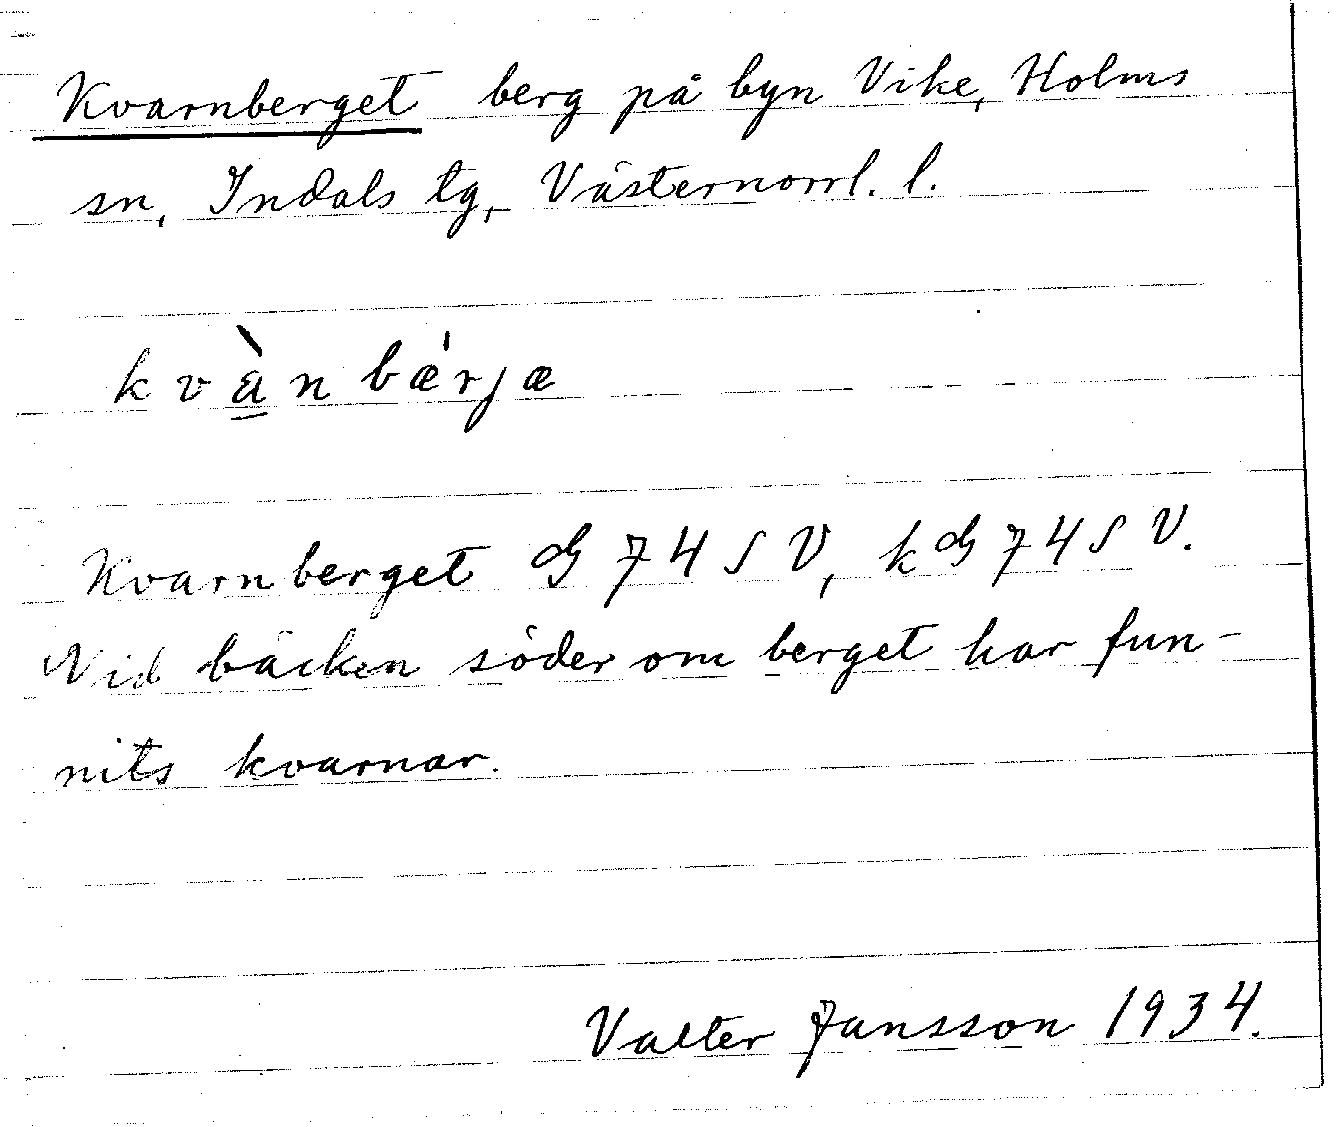 Kvarnberget berg på byn Vike, Holms
sn, Indals tg, Västernorrl. l.
kvàn bǽrjæ
Kvarnberget G 74 S V, k G 74 S V.
Vid bäcken söder om berget har fun-
nits kvarnar.
Valter Jansson 1934.